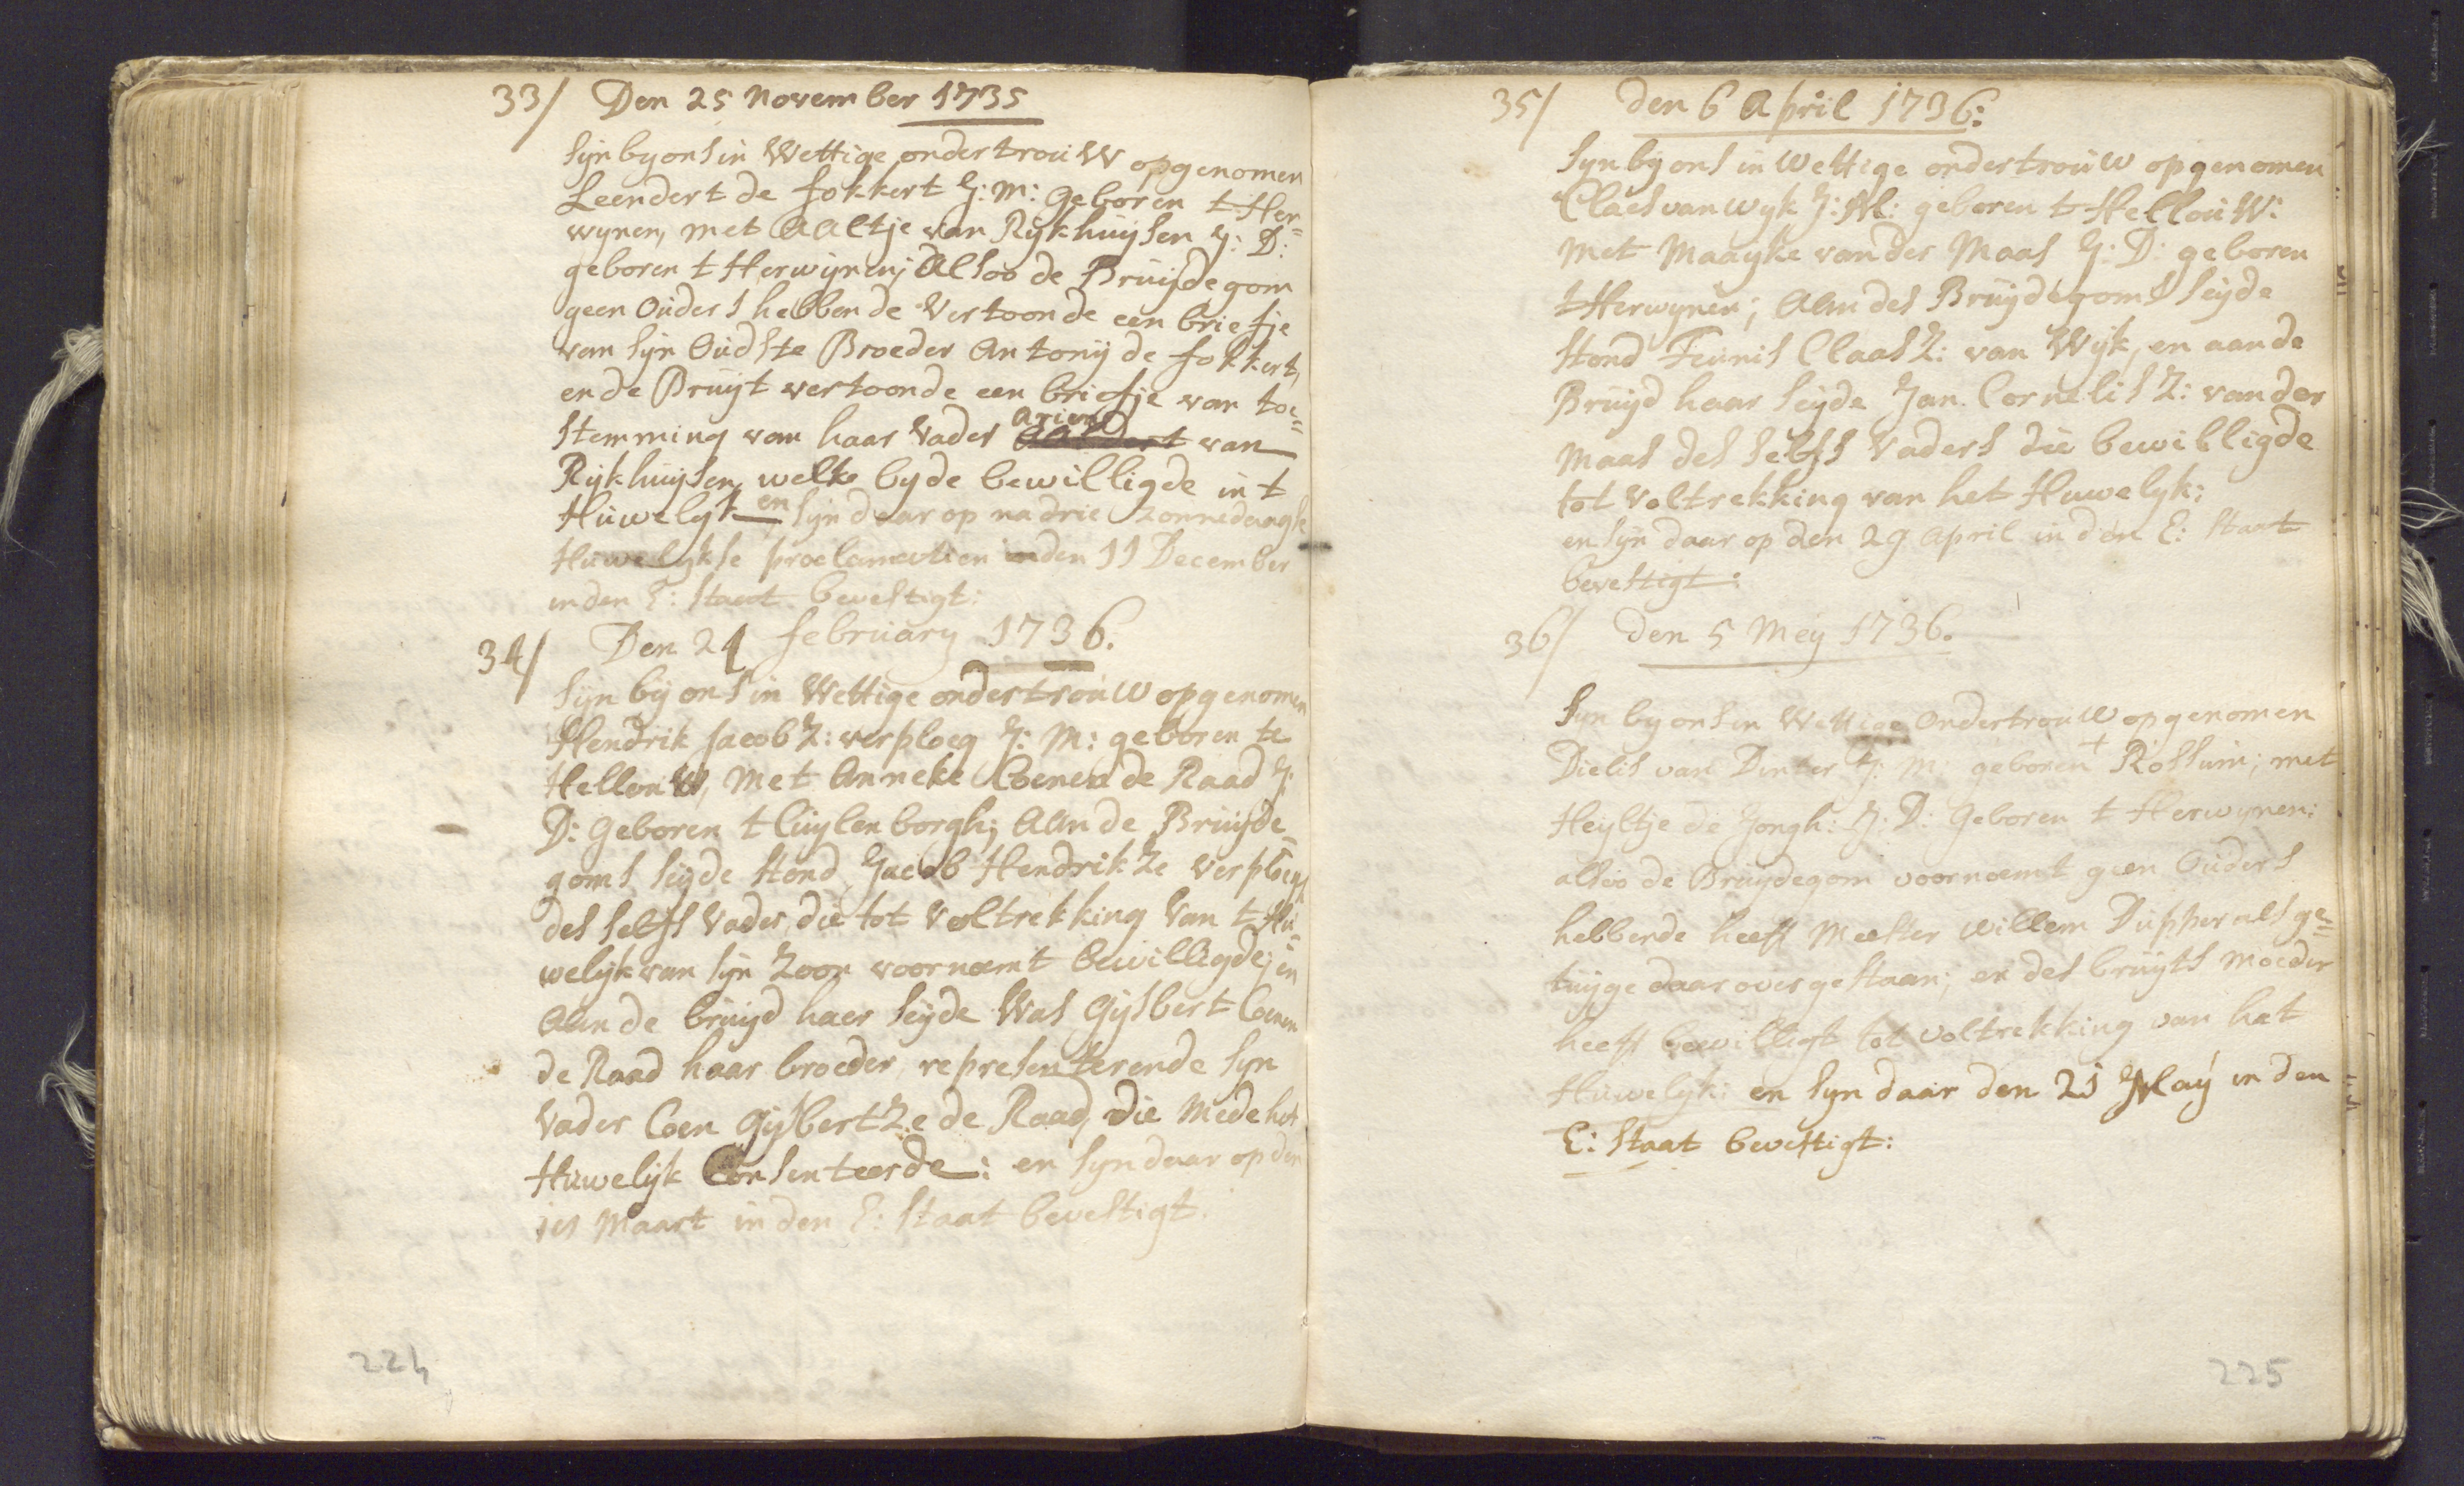 33/ Den 25 November 1735
Syn by ons in Wettige ondertrouW opgenomen
Leendert de fokkert J: M: Geboren t Her=
wynen, met AAltje van Rykhuysen J: D:
geboren t Herwynen; Alsoo de Bruijdegom
geen Ouders hebbende Vertoonde een briefje
van syn Oudste Broeder Antonij de fokkert,
en de Bruijt vertoonde een briefje van toe=
Stemming van haar Vader Arien van
Rijkhuysen, welke byde bewilligde in t
Huwelyk en syn daar op na drie zonnedaagse
Huwelykse proclamatien den 11 December
in den E: Staat bevestigt:
34/ Den 24 february 1736.
Syn bij ons in Wettige ondertrouW opgenomen
Hendrik Jacob Z: verploeg J: M: geboren te
HellouW, Met Anneke Coenen de Raad J:
D: Geboren t Cuylenborgh; AAn de Bruijde=
goms seyde stond Jacob HendrikZe Verploegh
des selfs Vader, die tot Voltrekking Van t Hu=
welijk van syn Zoon voornoemt bewilligde; en
AAn de bruijd haer seyde Was Gysbert Coenen
de Raad haar broeder, representerende syn
Vader Coen GysbertZe de Raad, Die Mede het
Huwelijk Consenteerde: en syn daar op den
Maart in den E: Staat bevestigt.
224
35/ den 6 April 1736:
Syn by ons in Wettige ondertrouW opgenomen
Claes van wyk J: M: geboren t HellouW:
Met Maayke vander Maas J: D: geboren
t Herwynen; AAn des Bruydegoms seyde
stond Teunis Claas Z: van Wijk, en aan de
Bruyd haar seyde Jan Cornelis Z: vander
Maas des selfs Vaders die bewilligde
tot voltrekking van het Huwelyk:
en syn daar op den 29 April in den E: Staat
bevestigt:
36/ den 5 Mey 1736.
Syn by ons in Wettige OndertrouW opgenomen
Dielis van Dinter J: M: geboren t Rossum; met
Heyltje de Jongh: J: D: Geboren t Herwynen:
alsoo de Bruydegom voornoemt geen Ouders
hebbende heeft Meester Willem Dupper als ge=
tuyge daar over gestaan; en des bruyts Moeder
heeft bewilligt tot voltrekking van het
Huwelyk: en syn daar den 21 Maij in den
E: Staat bevestigt:
225